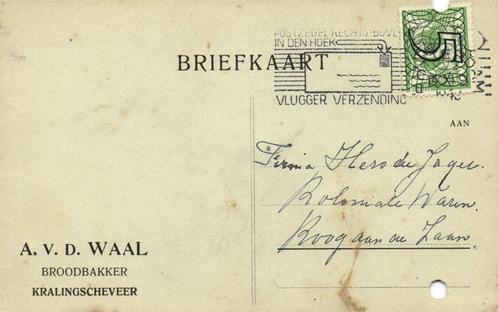 POSTZEGEL RECHTS BOVEN
IN DEN HOEK
VLUGGER VERZENDING
5
BRIEFKAART
AAN
Firma Hero de Jager
Koloniale Waren
Koog aan de Zaan
A. V. D. WAAL
BROODBAKKER
KRALINGSCHEVEER